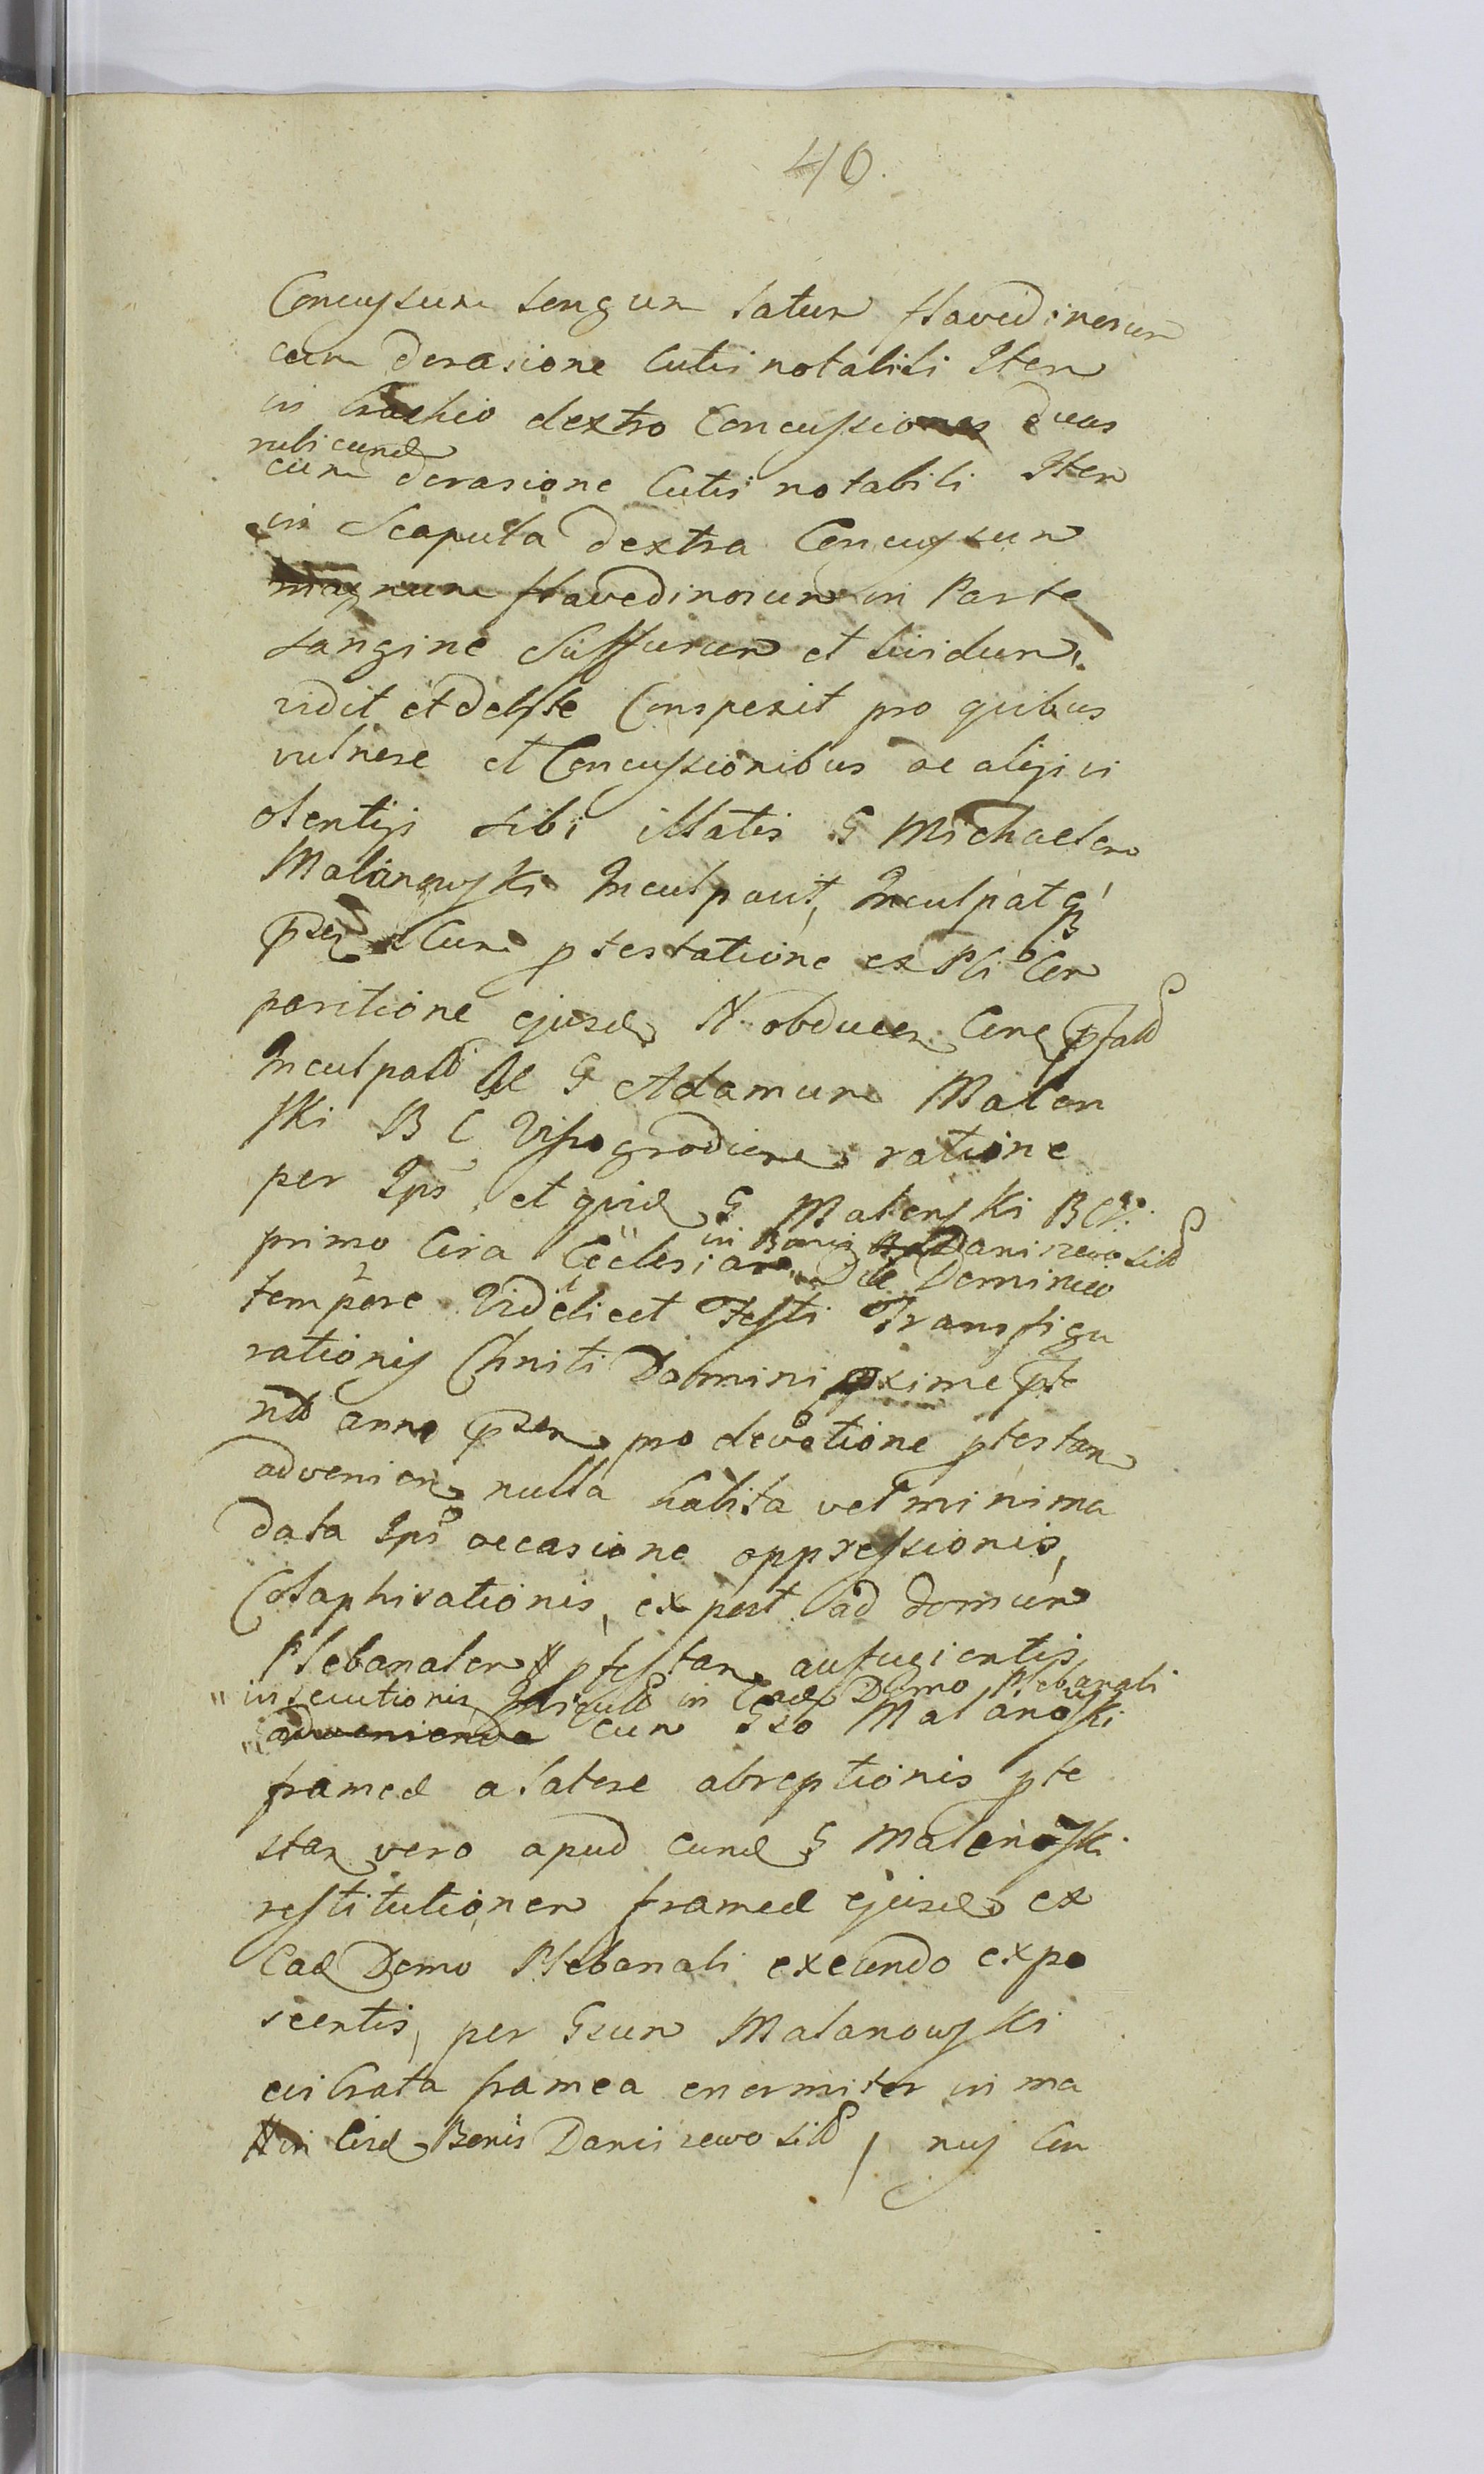 40.
Concussum longum latum flavedinosum
cum derasione Cutis notabili Item
in brachio dextro Concussiones duas
rubicund
cum derasione Cutis notabili Item
in Scapula dextra Concussum
magnum flavedinosum in Parte
sangine Suffusum et lividum,
vidit et Conspexit pro quibus
vulnere et Concussionibus ac alijs vi
olentijs sibi illatis G Michaelem
Malanowski Inculpavit, Inculpatq
Cum ptestatione ex Pti Com
paritione ejusd N obducen
Inculpatt G Adamum Malon
ski B C Vissogrodien ratione
per Ips et quid G Malenski B C V.
in Bonis Daniszewo sitt
primo Cira Ecclesiam Die Dominico
tempore Videlicet Festi Transfigu
rationis Chriti Domini pxime pte
anno pro devotione ptestan
advenien nulla habita vel minima
data Ips occasione oppressionis,
Colaphisationis, ex post ad domum
Plebanalem # ptestan aufugientis
" insecutionis in Ead Domo Plebanali
" advenienda cum Gso Malanoski
framed a latere abreptionis pte
stan vero apud eund G Malenoski
restitutionem framed ejusd ex
Ead Domo Plebanali exeundo expo
scentis, per Gsum Malanowski
evibrata framea enormiter in ma
# in Eisd Bonis Daniszewo sitt / nus Con